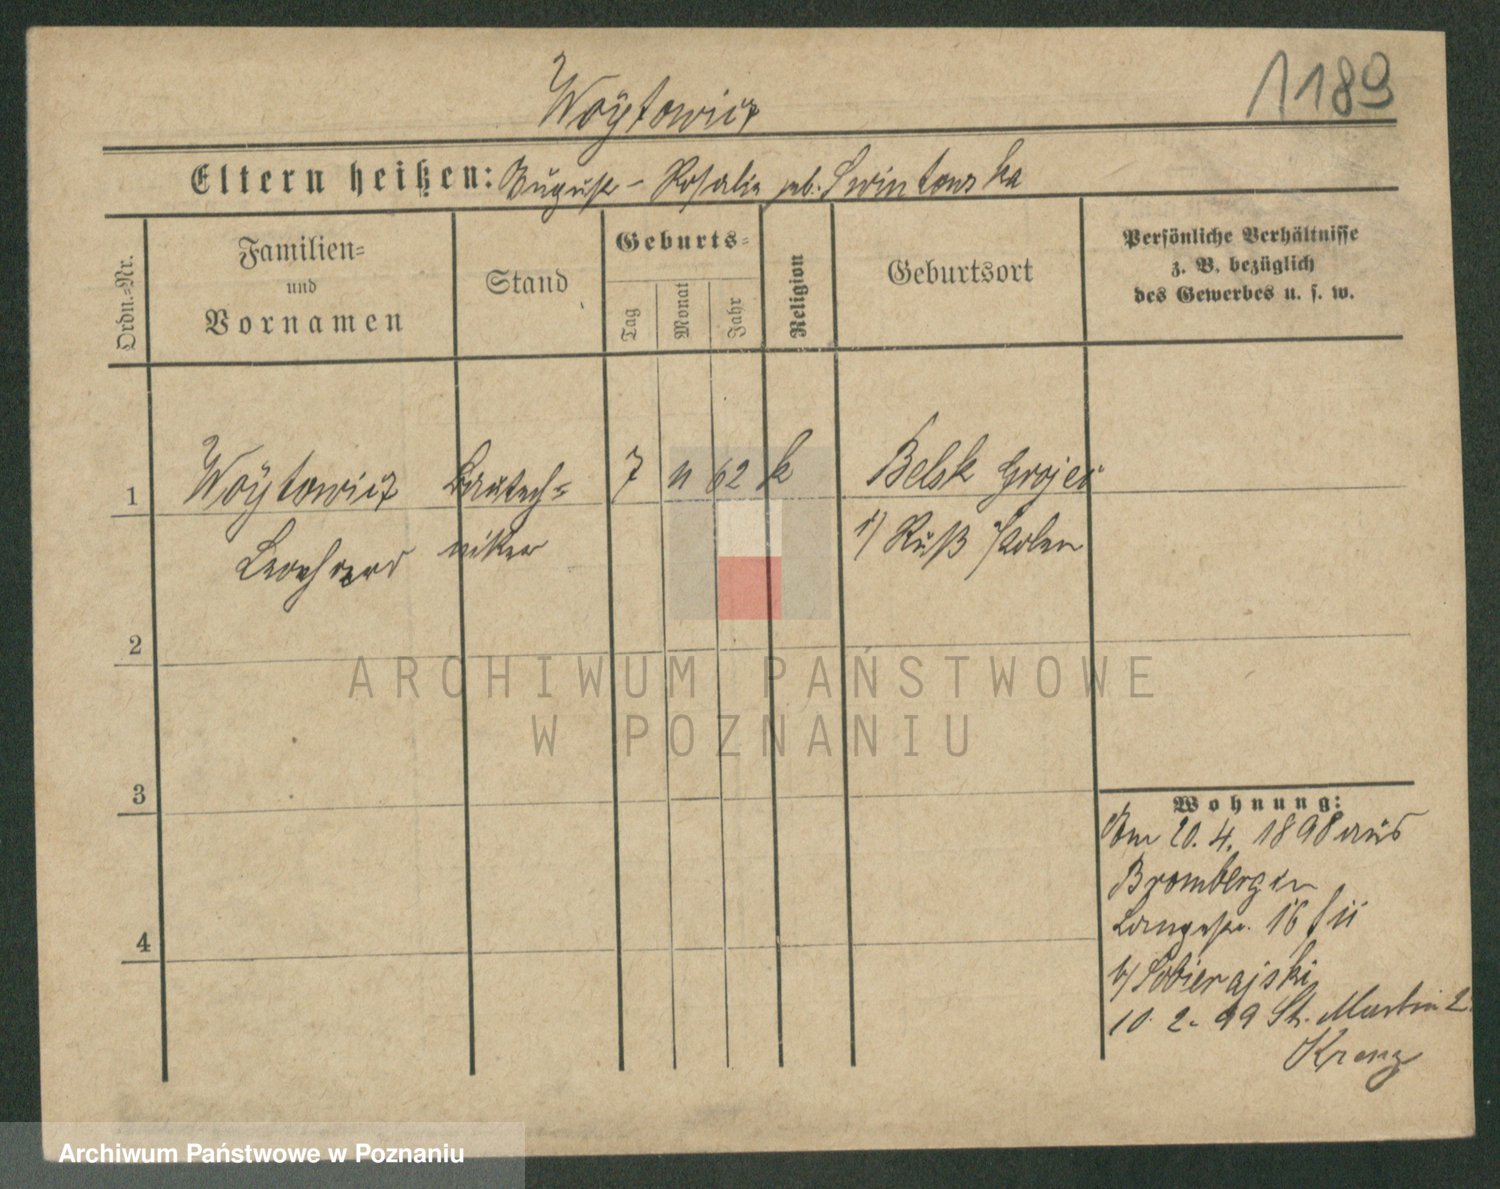 Woÿtowicz
1189
Eltern heißen: August – Rosalie geb. Swintowska
Ordn.-Nr.
Familien-
und
Vornamen
Stand
Geburts-
Tag
Monat
Jahr
Religion
Geburtsort
Persönliche Verhältnisse
z. B. bezüglich
des Gewerbes u. s. w.
1
Woÿtowicz
Bautech-
7
11
62
k
Belsk Grojec
niker
i/ Ruß Polen
2
ARCHIWUM PAŃSTWOWE
W POZNANIU
3
Wohnung:
Am 20. 4. 1898 aus
Bromberg in
Langestr. 16 II
4
b/ Sobierajski
10. 2. 99 St. Martin 2
Krenz
Archiwum Państwowe w Poznaniu